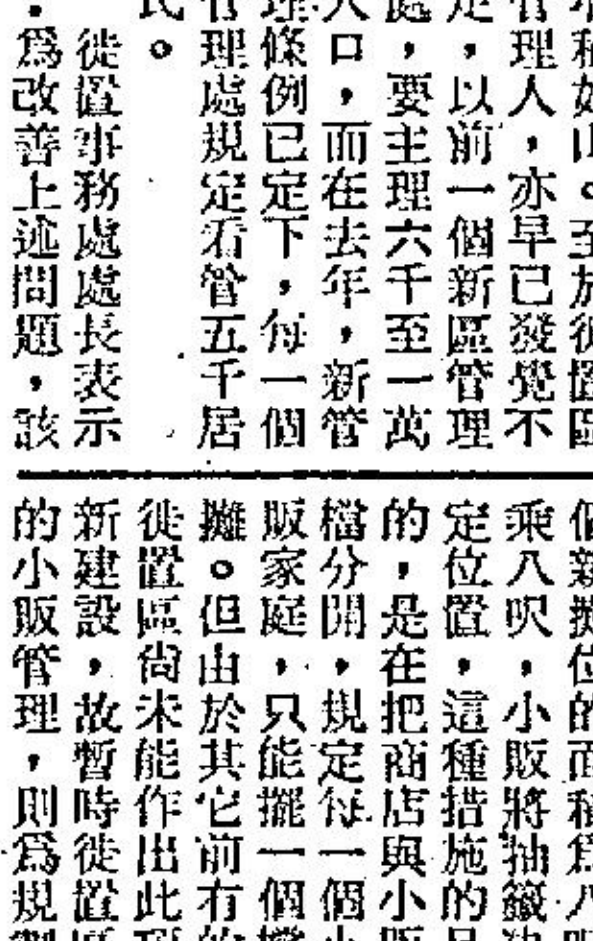 堆積如山。至於徙置區
管理人，亦早已發覺不
定，以前一個新區管理
處，要主理六千至一萬
人口，而在去年，新管
理條例已定下，每一個
管理處規定看管五千居
民。
徙置事務處處長表示
爲改善上述問題，該
個新攤位的面積爲八呎
乘八呎，小販將抽籤決
定位置，這種措施的目
的，是在把商店與小販
檔分開，規定每一個小
販家庭，只能擺一個檔
攤。但由於其它前有的
徙置區尚未能作出此項
新建設，故暫時徙置區
的小販管理，則爲規劃